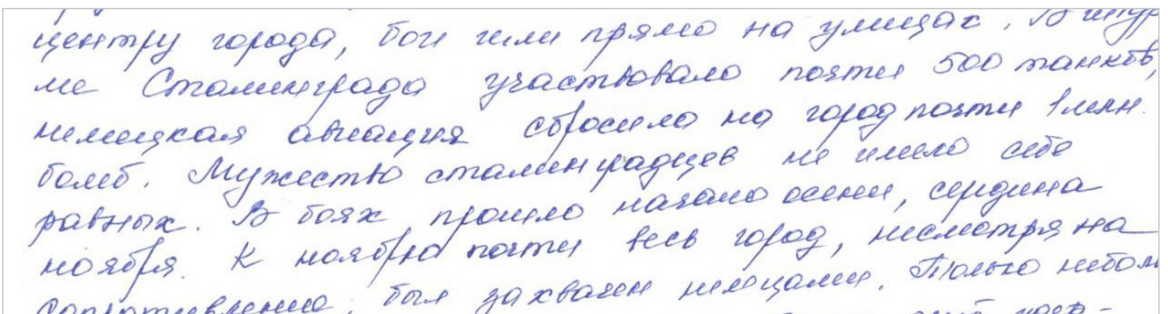 центру города, бои шли прямо на улицах. В штур
ме Сталинграда участвовало почти 500 танков,
немецкая авиация сбросила на город почти 1 млн.
бомб. Мужество сталинградцев не имело себе
равных. В боях прошло начало осени, середина
ноября. К ноябрю почти весь город, несмотря на
сопротивление, был захвачен немцами. Только небол